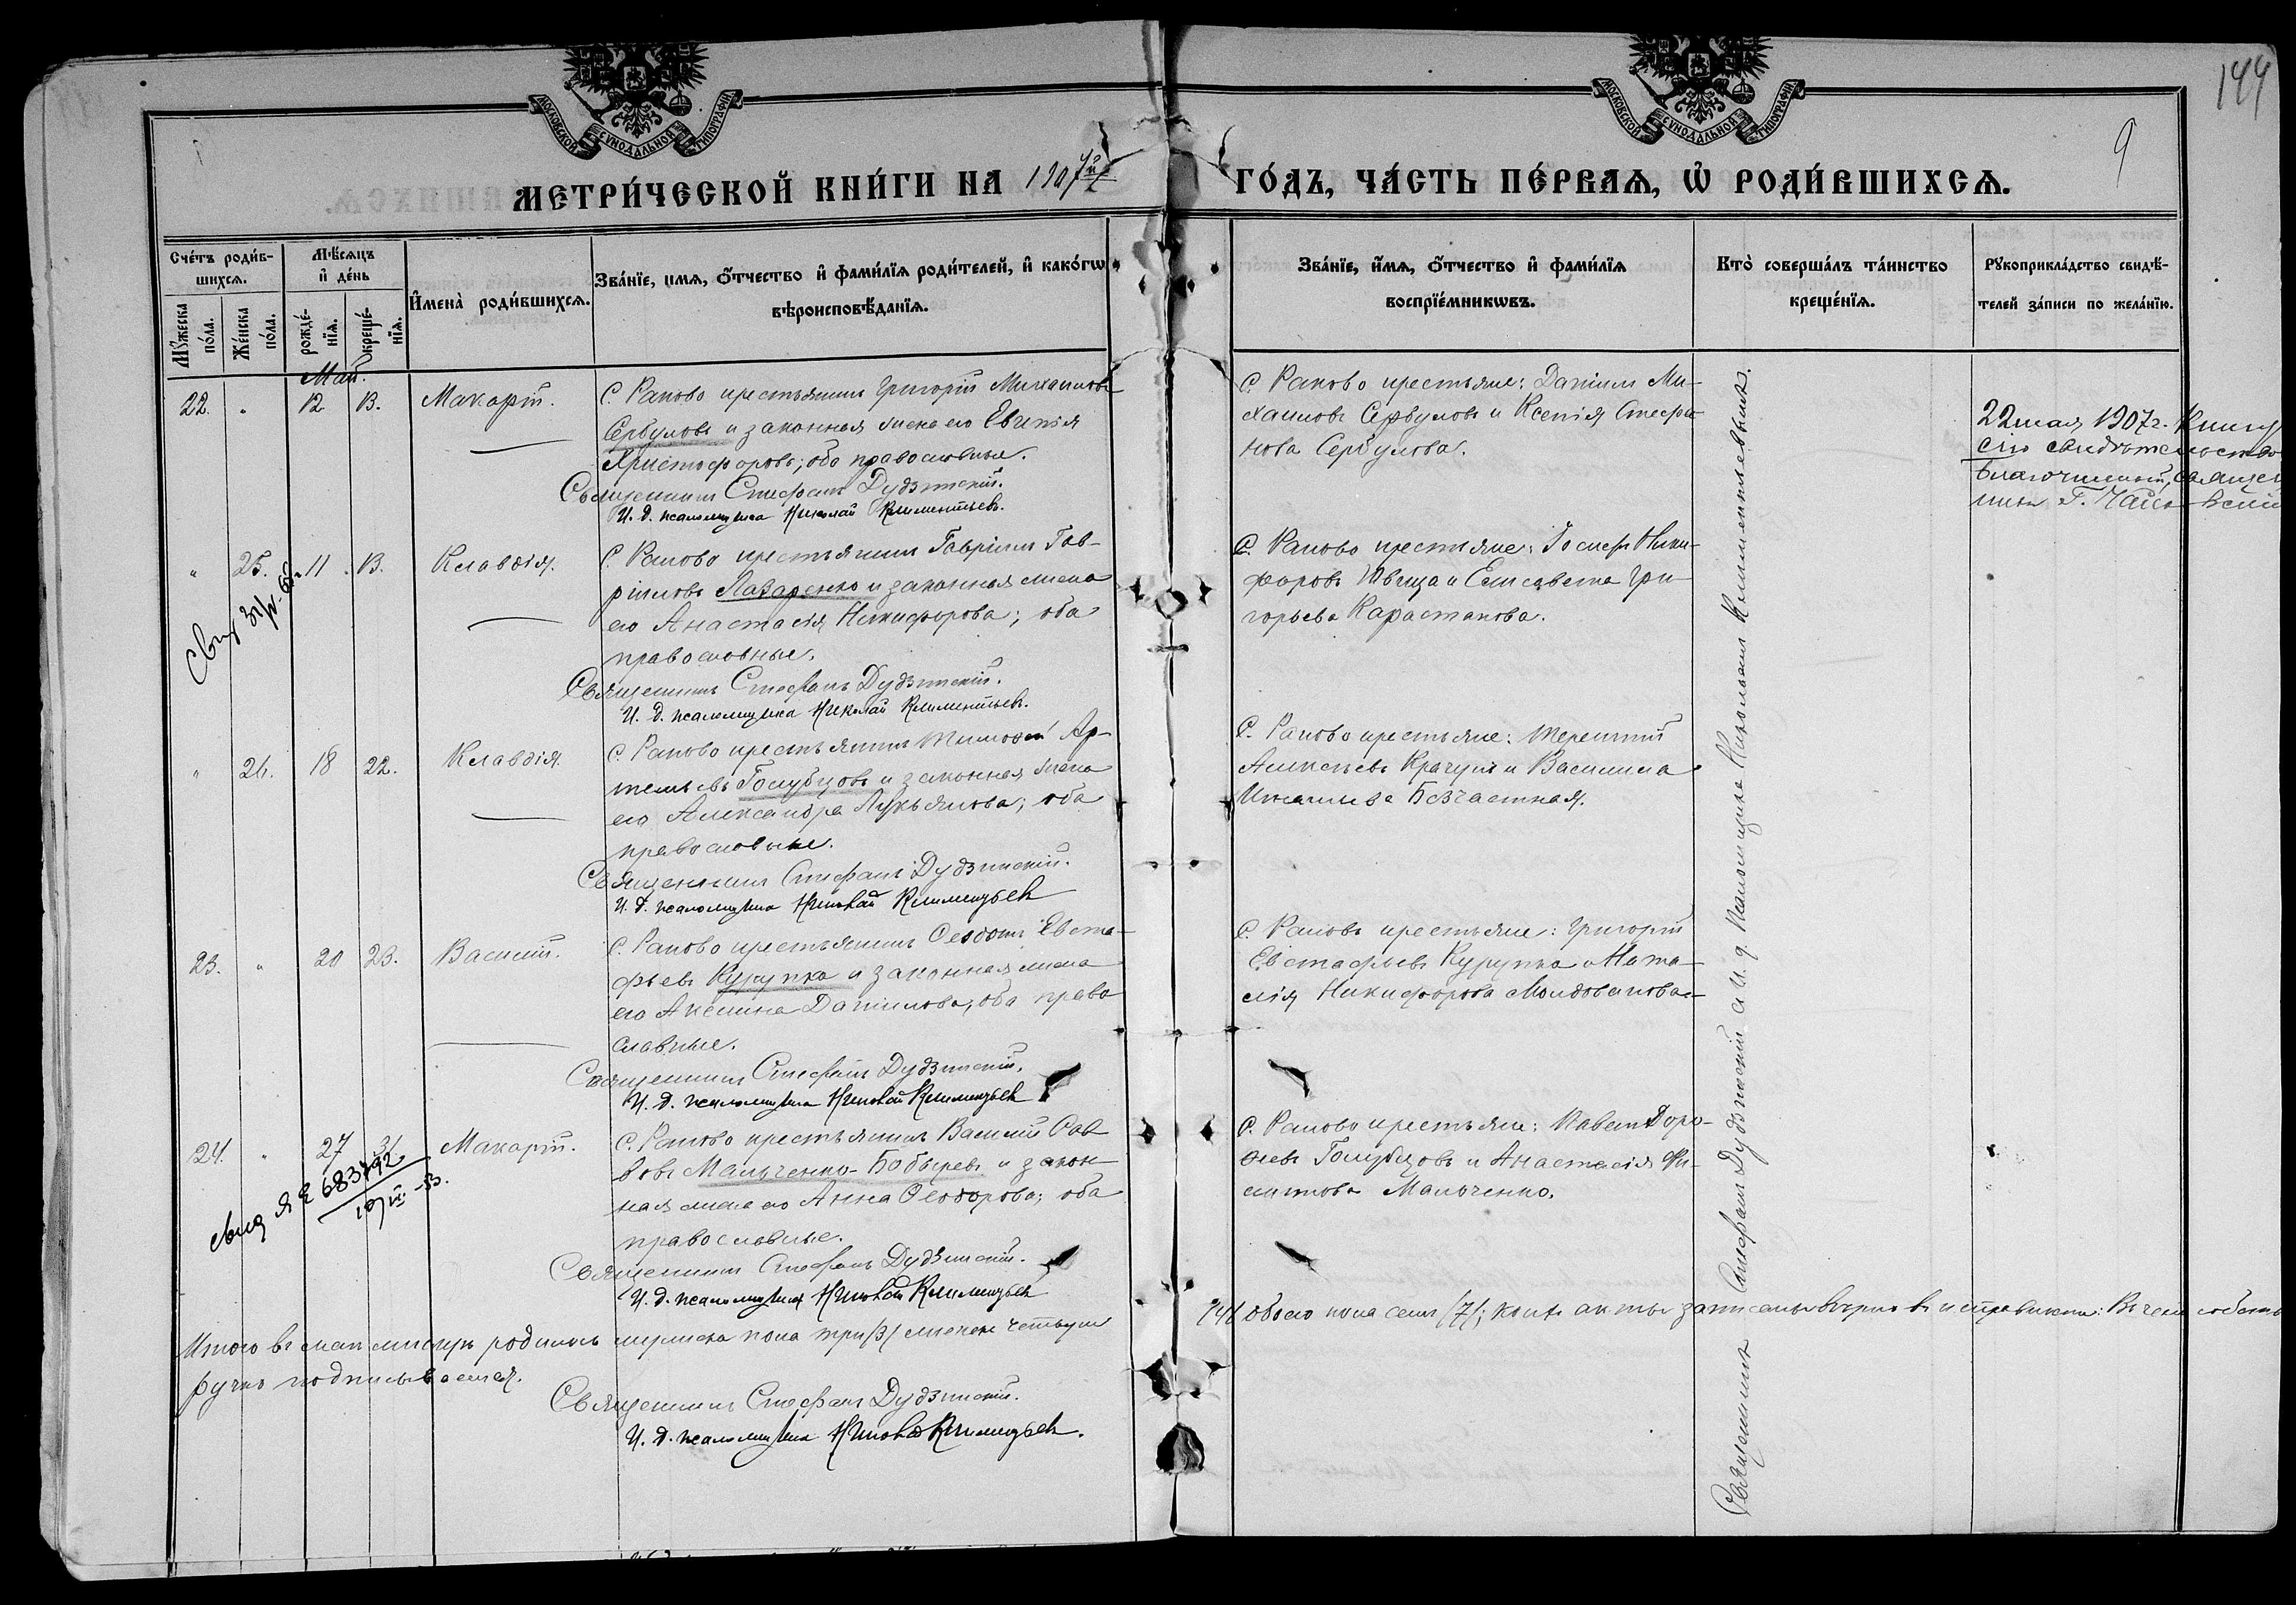 144
9
МОСКОВСКОЙ СѴНОДАЛЬНОЙ ТИПОГРАФІИ
МОСКОВСКОЙ СѴНОДАЛЬНОЙ ТИПОГРАФІИ
МЕТРИ́ЧЕСКОЙ КНИ́ГИ НА 1907й
ГО́ДЪ, ЧА́СТЬ ПЕ́РВАѦ, Ѡ҆ РОДИ́ВШИХСѦ.
Сче́тъ роди́в-
шихсѧ.
Мꙋ́жеска по́ла.
Же́нска по́ла.
Мѣ́сѧцъ
и҆ де́нь
рожде́-нїѧ.
креще́-нїѧ.
И҆мена̀ роди́вшихсѧ.
Зва́нїе, и҆мѧ, ѻ҆́тчество и҆ фами́лїѧ роди́телей, и҆ како́гѡ
вѣроисповѣ́данїѧ.
Зва́нїе, и҆́мѧ, ѻ҆́тчество и҆ фами́лїѧ
воспрїе́мникѡвъ.
Кто̀ соверша́лъ та́инство
креще́нїѧ.
Рꙋкоприкла́дство свидѣ́-
телей за́писи по жела́нїю.
Май.
22. " 12 13. Макарій.
С. Раково крестьянинъ Григорій Михаиловъ
Сербуловъ и законная жена его Евгенія
Христофорова; оба православные.
Священникъ Стефанъ Дудзинскій.
И. д. псаломщика Николай Климентьевъ.
С. Раково крестьяне: Даніилъ Ми-
хаиловъ Сербуловъ и Ксенія Стефа-
нова Сербулова.
22 мая 1907г. Книгу
сію свидѣтельство
благочинный, священ
никъ Г.
" 25. 11 13. Клавдія.
С. Раково крестьянинъ Гавріилъ Гав-
ріиловъ Лазаренко и законная жена
его Анастасія Никифорова; оба
православные.
Священникъ Стефанъ Дудзинскій.
И. д. псаломщика Николай Климентьевъ.
С. Раково крестьяне: Іосифъ Ники-
форовъ Швеца и Елисавета Гри-
горьева Карастанова.
" 26. 18 22. Клавдія.
С. Раково крестьянинъ Тимофей Ар-
темьевъ Голубцовъ и законная жена
его Александра Лукьянова; оба
православные.
Священникъ Стефанъ Дудзинскій.
И. д. псаломщика Николай Климентьевъ
С. Раково крестьяне: Терентій
Алексѣевъ Крачунъ и Василиса
Игнатьева Безчастная.
23. " 20 23. Василій.
С. Раково крестьянинъ Ѳеодотъ Евста-
фьевъ Курупка и законная жена
его Аксинія Даніилова; оба право
славные.
Священникъ Стефанъ Дудзинскій.
И. д. псаломщика Николай Климентьевъ
С. Раково крестьяне: Григорій
Евстафьевъ Курупка и Ната-
лія Никифорова Молдованова
24. " 27 31 Макарій.
683792
С. Раково крестьянинъ Василій Сав
вовъ Мальченко-Бобыревъ и закон-
ная жена его Анна Ѳеодорова; оба
православные.
Священникъ Стефанъ Дудзинскій.
И. д. псаломщика Николай Климентьевъ
С. Раково крестьяне: Павелъ Доро-
ѳеевъ Голубцовъ и Анастасія Фи-
липпова Мальченко.
Итого въ маѣ мѣсяцѣ родилось мужеска пола три /3/ женска четыре /4/ обоего пола семь /7/; коихъ акты записаны вѣрно и исправно: Въ чемъ собствен
ручно подписываемся.
Священникъ Стефанъ Дудзинскій.
И. д. псаломщика Николай Климентьевъ.
Священникъ Стефанъ Дудзинскій и И. д. Псаломщика Николай Климентьевъ.